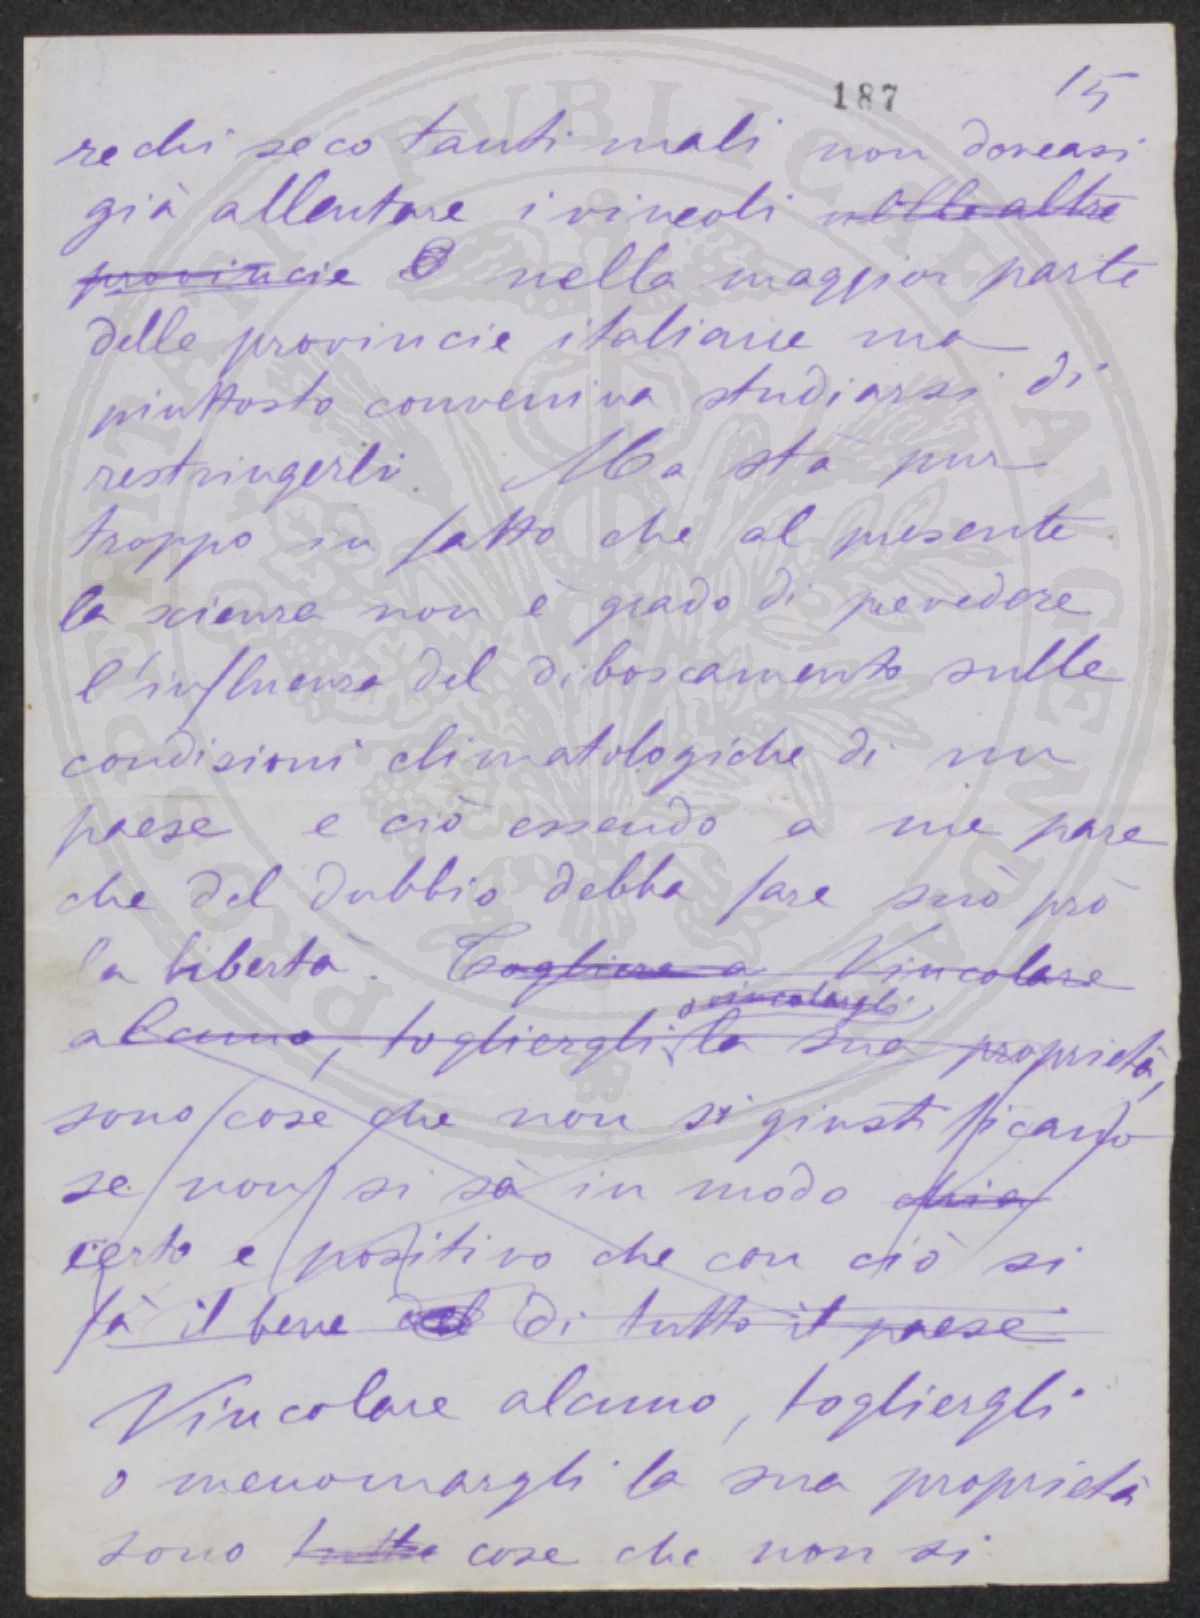 187 15
rechi seco tanti mali non doveasi
già allentare i vincoli nelle altre
provincie nella maggior parte
delle provincie italiane ma
piuttosto conveniva studiarsi di
restringerli. Ma stà pur
troppo in fatto che al presente
la scienza non è grado di prevedere
l'influenza del diboscamento sulle
condizioni climatologiche di un
paese e ciò essendo a me pare
che del dubbio debba fare suò prò
la libertà. Togliere a Vincolare
o vincolargli
alcuno, togliergli la sua proprietà,
sono cose che non si giustificano
se non si sà in modo chia
certo e positivo che con ciò si
fà il bene del di tutto il paese
Vincolare alcuno, togliergli
o menomargli la sua proprietà
sono tutte cose che non si